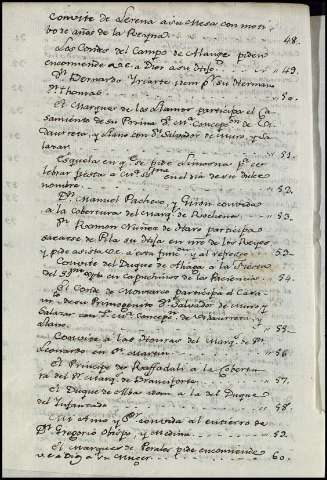 Convite de Lorena a su Mesa con moti
bo de años de la Reyna 48.
Los Condes del Campo de Alange piden
encomiende a Dios a su Hijo 49.
Dn. Bernardo Yriarte, item pr. su Hermano
Dn. Thomas 50.
El Marques de los Llamos participa el Ca
samiento de su Prima Da. Ma. Concepcon. de
y Llano con Dn. Salvador de Muro, y Sa
lazar 51.
Esquela en qe. se pide Limosna pa. ce
lebrar fiesta a Ma. Sma. en el dia de su dulce
nombre 52.
Dn. Manuel Pacheco, y Giron convida
a la Cobertura del Marqs. de 53.
Dn. Ramon Nuñez de Haro participa
de Pila su Hija en nre. de los Reyes
y pide asista a esta funcn. y al refresco
Convite del Duque de a la Fiesta
del Smo. en Capuchinos de la Paciencia 54.
El Conde de Montarco participa el Casa
mto. de su Primogenito Dn. Salvador de Muro y
Salazar con Da. Ma. Concepn. de y
Llano 55.
Convite a las Honras del Marqs. de Sn.
Leonardo en Sn. Martin 56.
El Principe de Raffadali a la Cobertu
ra del Sr. Marqs. de Branciforte 57.
El Duque de Alba a la del Duque
del Infantado 58.
convida al entierro de
Dn. Gregorio y Medina 59.
El Marques de Perales pide encomiende
a Ds. a su Muger 60.